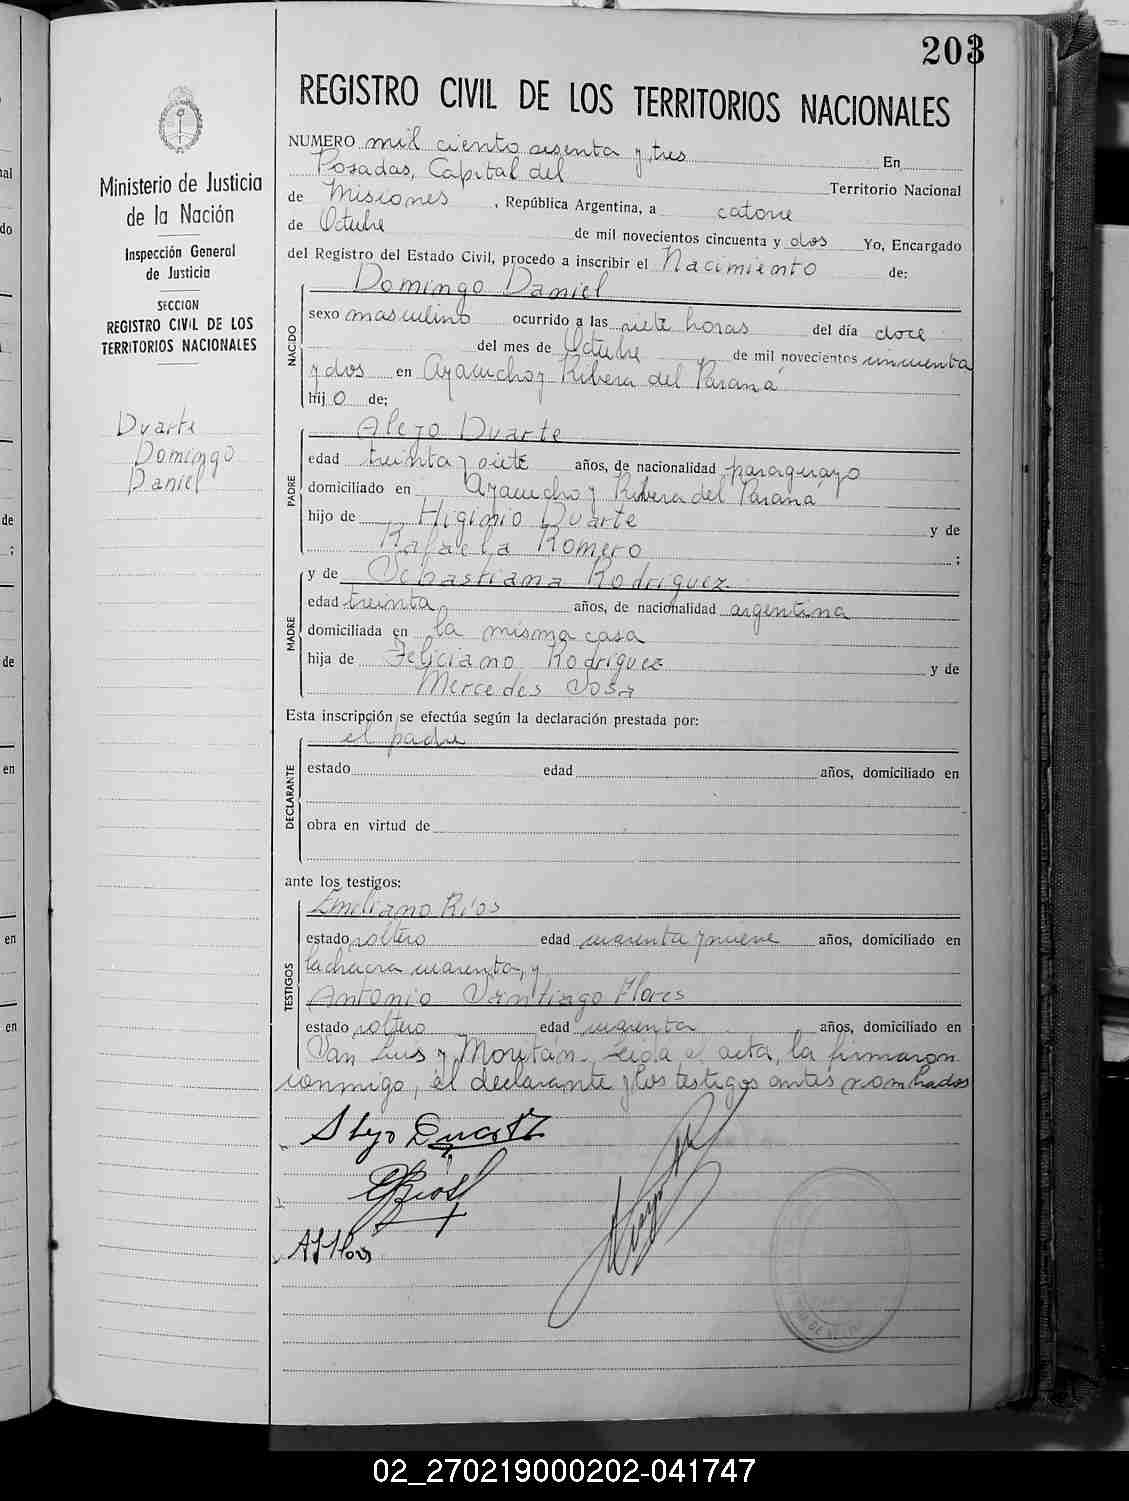 203
REGISTRO CIVIL DE LOS TERRITORIOS NACIONALES
Ministerio de Justicia
de la Nación
Inspección General
de Justicia
SECCION
REGISTRO CIVIL DE LOS
TERRITORIOS NACIONALES
Duarte
Domingo
Daniel
NUMERO mil ciento sesenta y tres En
Posadas, Capital del Territorio Nacional
de Misiones, República Argentina, a catorce
de Octubre de mil novecientos cincuenta y dos Yo, Encargado
del Registro del Estado Civil, procedo a inscribir el Nacimiento de:
Domingo Daniel
NACIDO
sexo masculino ocurrido a las siete horas del día doce
del mes de Octubre de mil novecientos cincuenta
y dos en Ayacucho y Ribera del Paraná
hijo de:
Alejo Duarte
PADRE
edad treinta y siete años, de nacionalidad paraguayo
domiciliado en Ayacucho y Ribera del Paraná
hijo de Higinio Duarte y de
Rafaela Romero ;
y de Sebastiana Rodríguez
MADRE
edad treinta años, de nacionalidad argentina
domiciliada en la misma casa
hija de Feliciano Rodríguez y de
Mercedes Sosa
Esta inscripción se efectúa según la declaración prestada por:
el padre
DECLARANTE
estado edad años, domiciliado en
obra en virtud de
ante los testigos:
Emiliano Ríos
TESTIGOS
estado soltero edad cuarenta y nueve años, domiciliado en
la chacra cuarenta, y
Antonio Santiago Flores
estado soltero edad cuarenta años, domiciliado en
San Luis y Moritán. Leída el acta, la firmaron
conmigo, el declarante y los testigos antes nombrados
Alejo Duarte
E Ríos
A S Flores
02_270219000202-041747